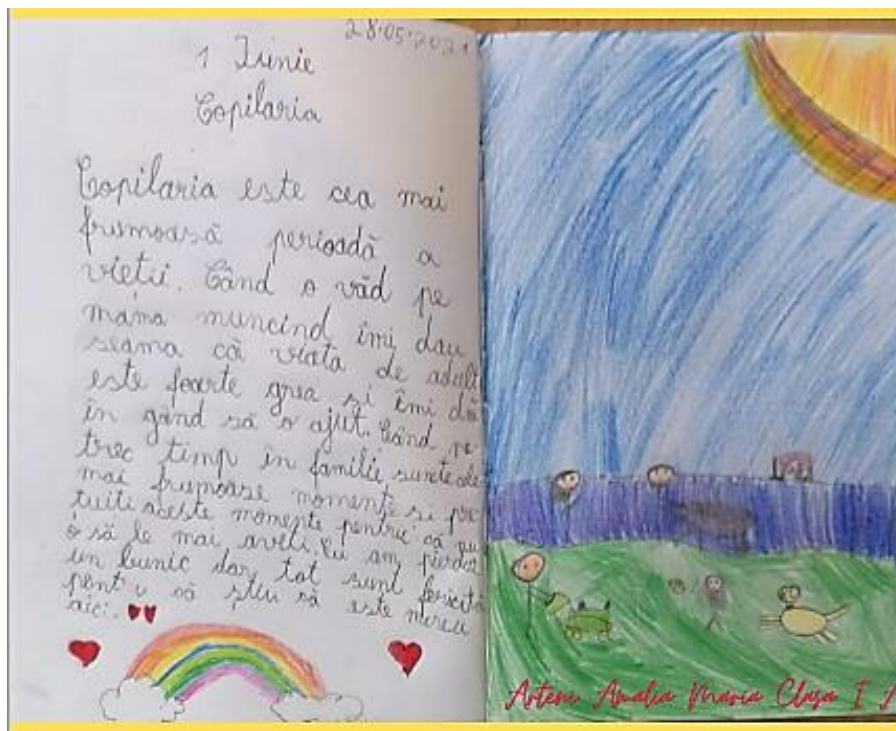 28.05.2021
1 Iunie
Copilaria
Copilaria este cea mai
frumoasă perioadă a
vieții. Când o văd pe
mama muncind îmi dau
seama că viața de adult
este foarte grea și îmi dă
în gând să o ajut. Când pe
trec timp în familie sunt cele
mai frumoase momente și pre
tuiti aceste momente pentru că nu
o să le mai aveti. Eu am pierdut
un bunic dar tot sunt fericită
pentru că știu că este mereu
aici.
Arteni Amalia Maria Clasa I A